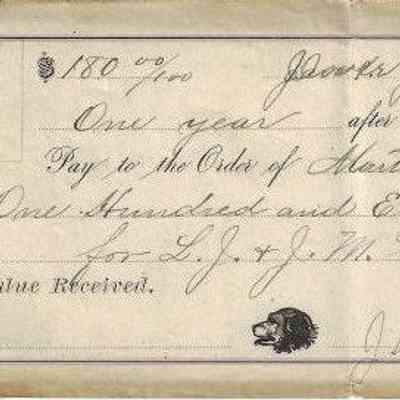 $ 180 00/100
One year after
Pay to the Order of
One Hundred and E
for L. J. & J. M.
alue Received.
J